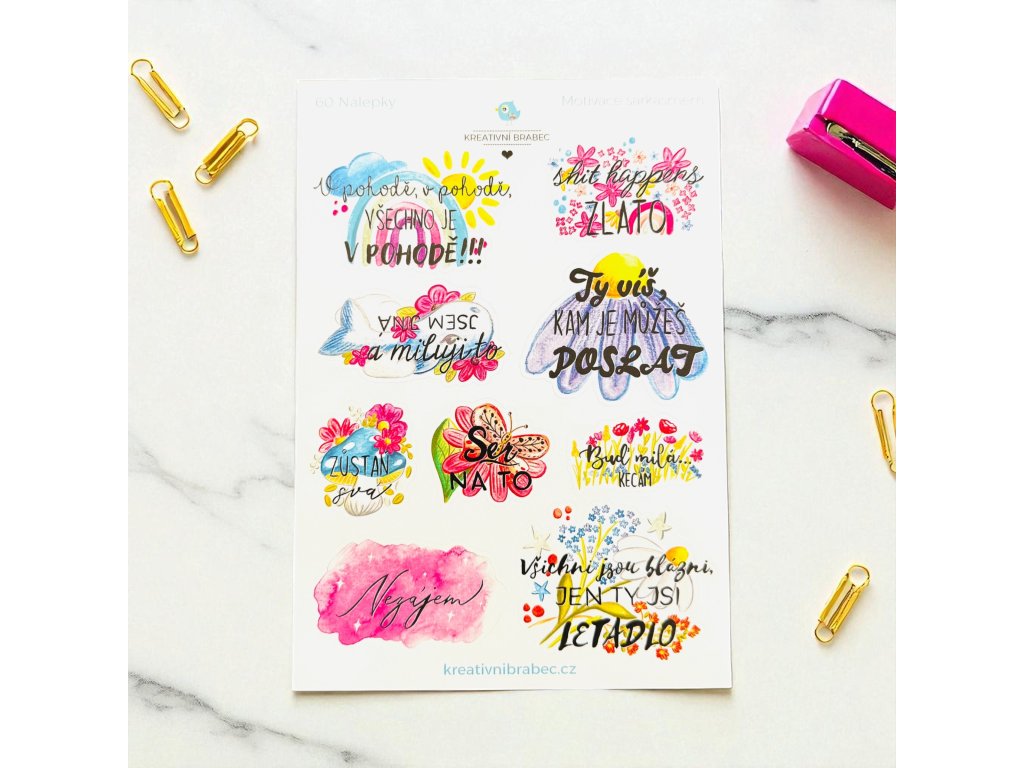 60 Nálepky
Motivace sarkasmem
KREATIVNÍ BRABEC
V pohodě, v pohodě,
VŠECHNO JE
V POHODĚ!!!
shit happens
ZLATO
JSEM JINÁ
a miluji to
Ty víš,
KAM JE MŮŽEŠ
POSLAT
ZŮSTAŇ
svá
Ser
NA TO
Buď milá...
KECÁM
Nezájem
Všichni jsou blázni,
JEN TY JSI
LETADLO
kreativnibrabec.cz